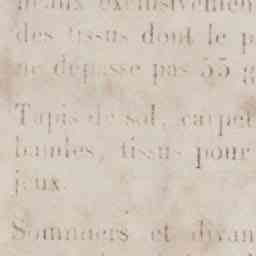 des tissus dont le p
ne dépasse pas 55 g
Tapis de sol, carpet
bandes, tissus pour
jeux.
Sommiers et divan